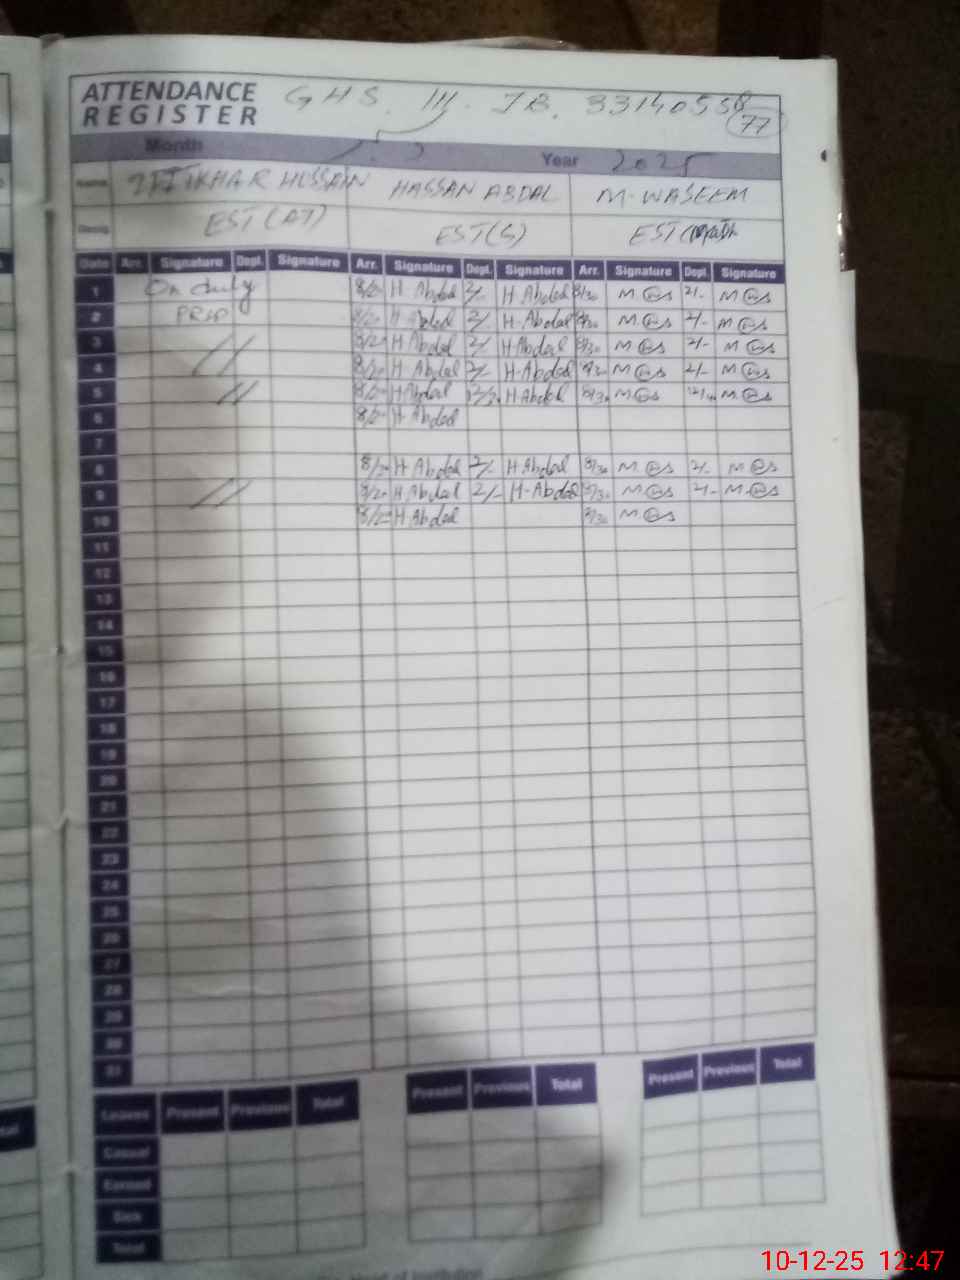 ATTENDANCE REGISTER
GHS 111 JB. 33140558
77
Month Year 2025
Name IFTIKHAR HUSSAIN HASSAN ABDAL M. WASEEM
Desig. EST(AT) EST(S) EST(Math
Date Arr. Signature Dept. Signature Arr. Signature Dept. Signature Arr. Signature Dept. Signature
1 On duty 8/20 H Abdal 2/- H Abdal 8/30 2/-
2 8/20 H Abdal 2/- H-Abdal 8/30 2/-
3 // 8/20 H Abdal 2/- H Abdal 8/30 2/-
4 8/20 H Abdal 2/- H-Abdal 8/30 2/-
5 // 8/20 H Abdal H Abdal 8/30
6 8/20 H Abdal
7
8 8/20 H Abdal 2/- H Abdal 8/30 2/-
9 // 8/20 H Abdal 2/- H-Abdal 8/30 2/-
10 8/20 H Abdal 8/30
11
12
13
14
15
16
17
18
19
20
21
22
23
24
25
26
27
28
29
30
31
Leaves Present Previous Total Present Previous Total Present Previous Total
Casual
Earned
Sick
Total
10-12-25 12:47